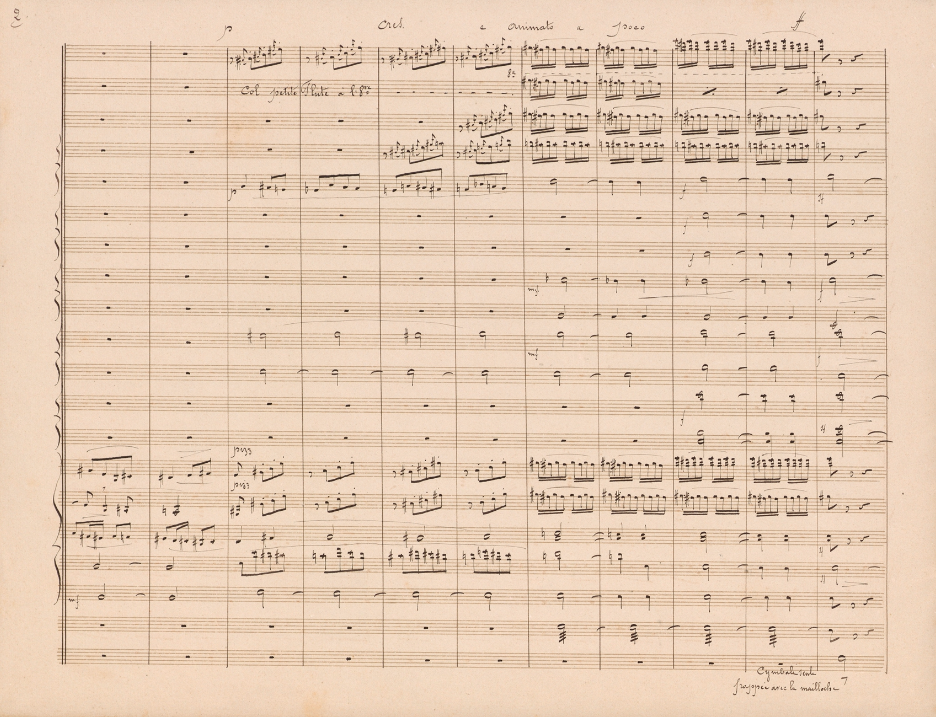 2
p Cresc. e animato a poco ff
8ª
Col petite Flûte a l'8ve
p
f
ff
f
f
mf
f
mf
f
f
ff
pizz
pizz
ff
mf
Cymbale seule
frappée avec la mailloche